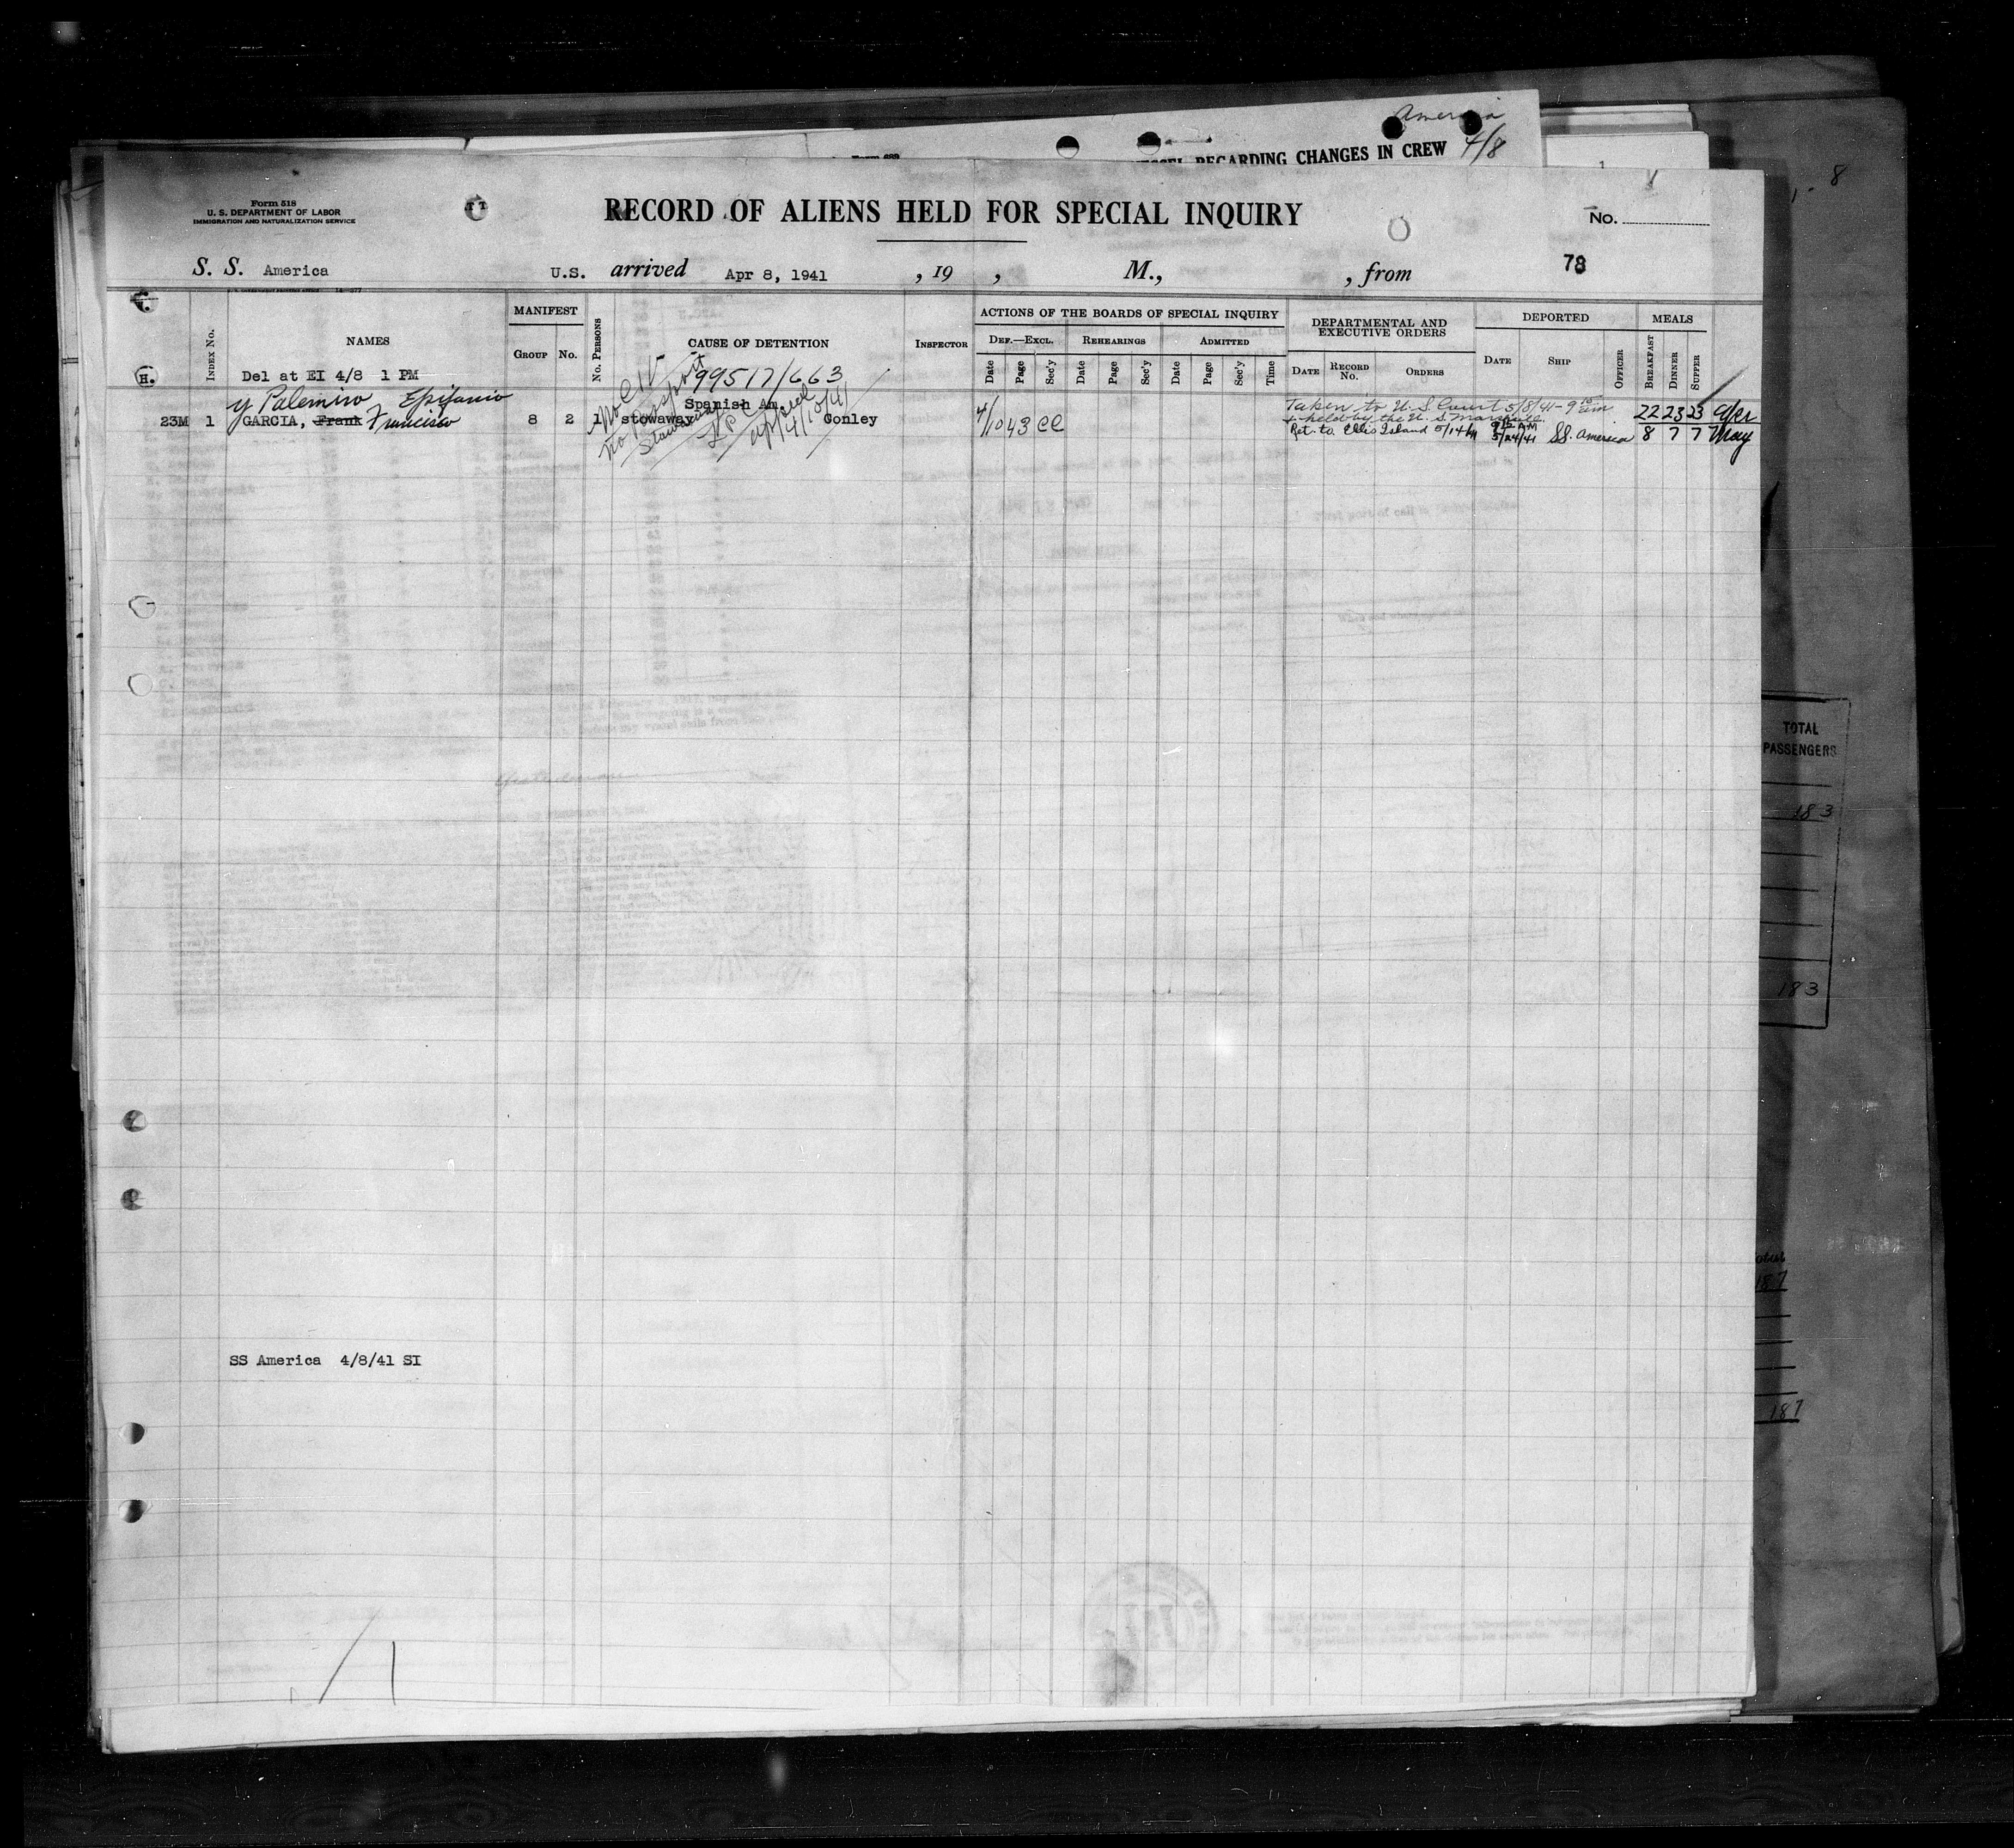 America
4/8
REGARDING CHANGES IN CREW
8
Form 518
U. S. DEPARTMENT OF LABOR
IMMIGRATION AND NATURALIZATION SERVICE
RECORD OF ALIENS HELD FOR SPECIAL INQUIRY
No.
S. S. America U.S. arrived Apr 8, 1941 , 19 , M., , from 78
H.
Index No.
NAMES
MANIFEST
Group No.
No. Persons
CAUSE OF DETENTION
Inspector
ACTIONS OF THE BOARDS OF SPECIAL INQUIRY
Def.—Excl. Rehearings Admitted
Date Page Sec'y Date Page Sec'y Date Page Sec'y Time
DEPARTMENTAL AND
EXECUTIVE ORDERS
Date Record No. Orders
DEPORTED
Date Ship Officer
MEALS
Breakfast Dinner Supper
Del at EI 4/8 1 PM
99517/663
y Palemiro Epifanio
23M 1 GARCIA, Frank Francisco 8 2 1 stowaway Spanish Am. Conley
No CIV
no passport
Stowaway
LPC
appeal
4/10/41
4/10 43 CC
Taken to U.S. Court 5/8/41 - 9 15 am
+ held by the U.S. Marshall.
Ret. to Ellis Island 5/14/41
9 15 AM
5/24/41 SS. America
22 23 23 Apr
8 7 7 May
SS America 4/8/41 SI
TOTAL
PASSENGERS
183
183
187
187